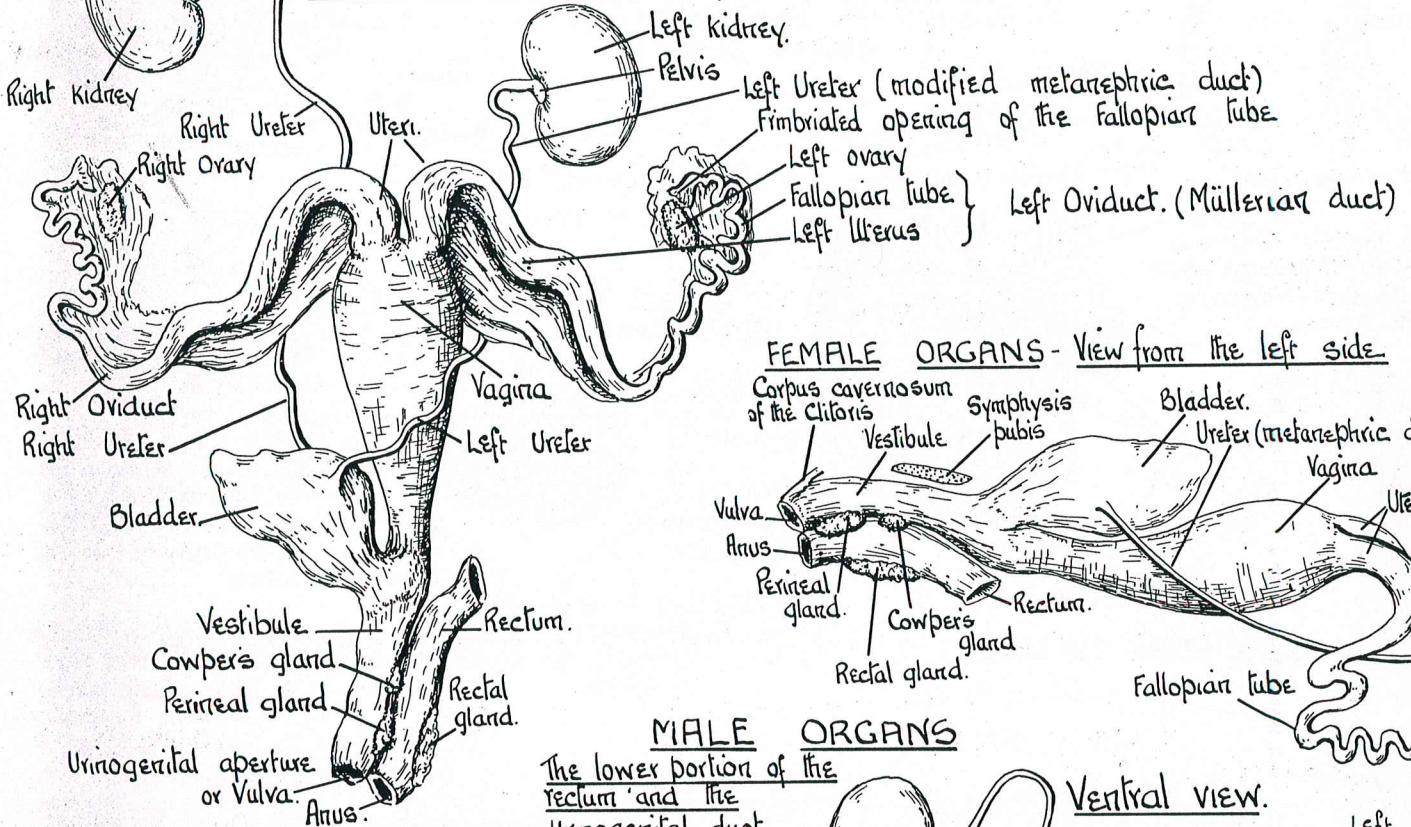 Right Kidney
Right Ureter
Uteri.
Right Ovary
Left kidney.
Pelvis
Left Ureter (modified metanephric duct)
Fimbriated opening of the Fallopian tube
Left ovary
Fallopian tube
Left Uterus
Left Oviduct. (Müllerian duct)
Right Oviduct
Right Ureter
Vagina
Left Ureter
Bladder
Vestibule
Cowper's gland
Perineal gland
Urinogenital aperture
or Vulva.
Anus.
Rectum.
Rectal
gland.
FEMALE ORGANS - View from the left side
Corpus cavernosum
of the Clitoris
Vestibule
Symphysis
pubis
Bladder.
Ureter (metanephric
Vagina
Vulva
Anus
Perineal
gland.
Cowper's
gland
Rectal gland.
Rectum.
Fallopian tube
MALE ORGANS
The lower portion of the
rectum and the
duct
Ventral view.
Left